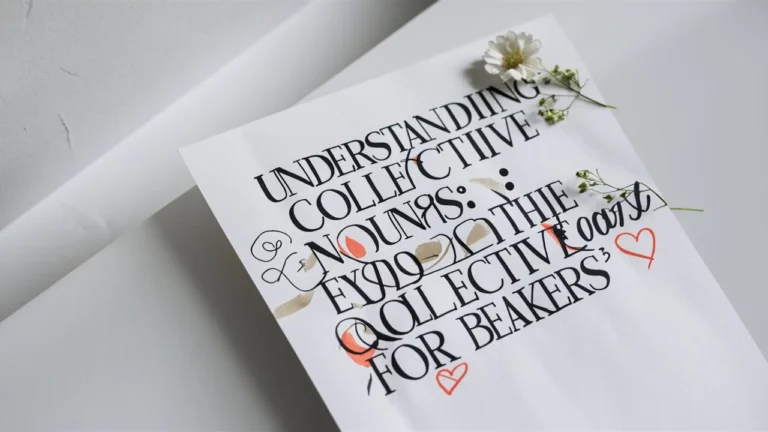 UNDERSTANDIING
COLLECTIIVE
NOUNS:
THIE
QOLLECTIVE
FOR BEAKERS’